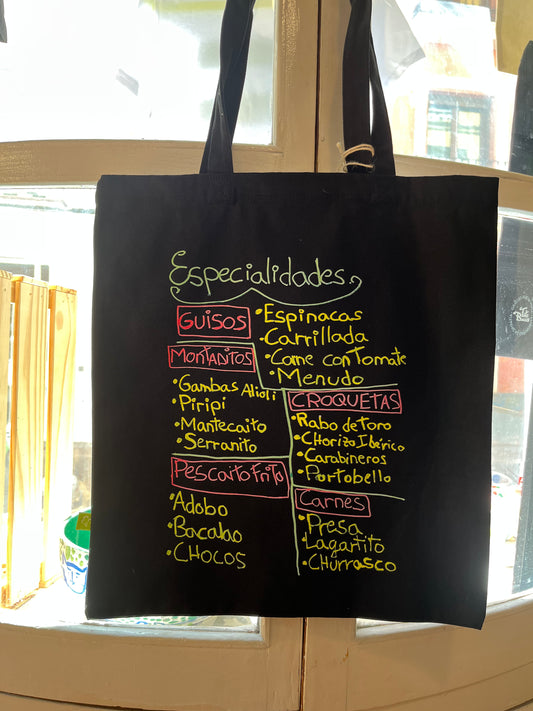 Especialidades
GUISOS
•Espinacas
•Carrillada
•Carne con tomate
•Menudo
MONTADITOS
•Gambas Alioli
•Piripi
•Mantecaito
•Serranito
CROQUETAS
•Rabo de toro
•Chorizo Ibérico
•Carabineros
•Portobello
Pescaíto Frito
Adobo
•Bacalao
•CHOCOS
Carnes
•Presa
Lagartito
•CHURRASCO